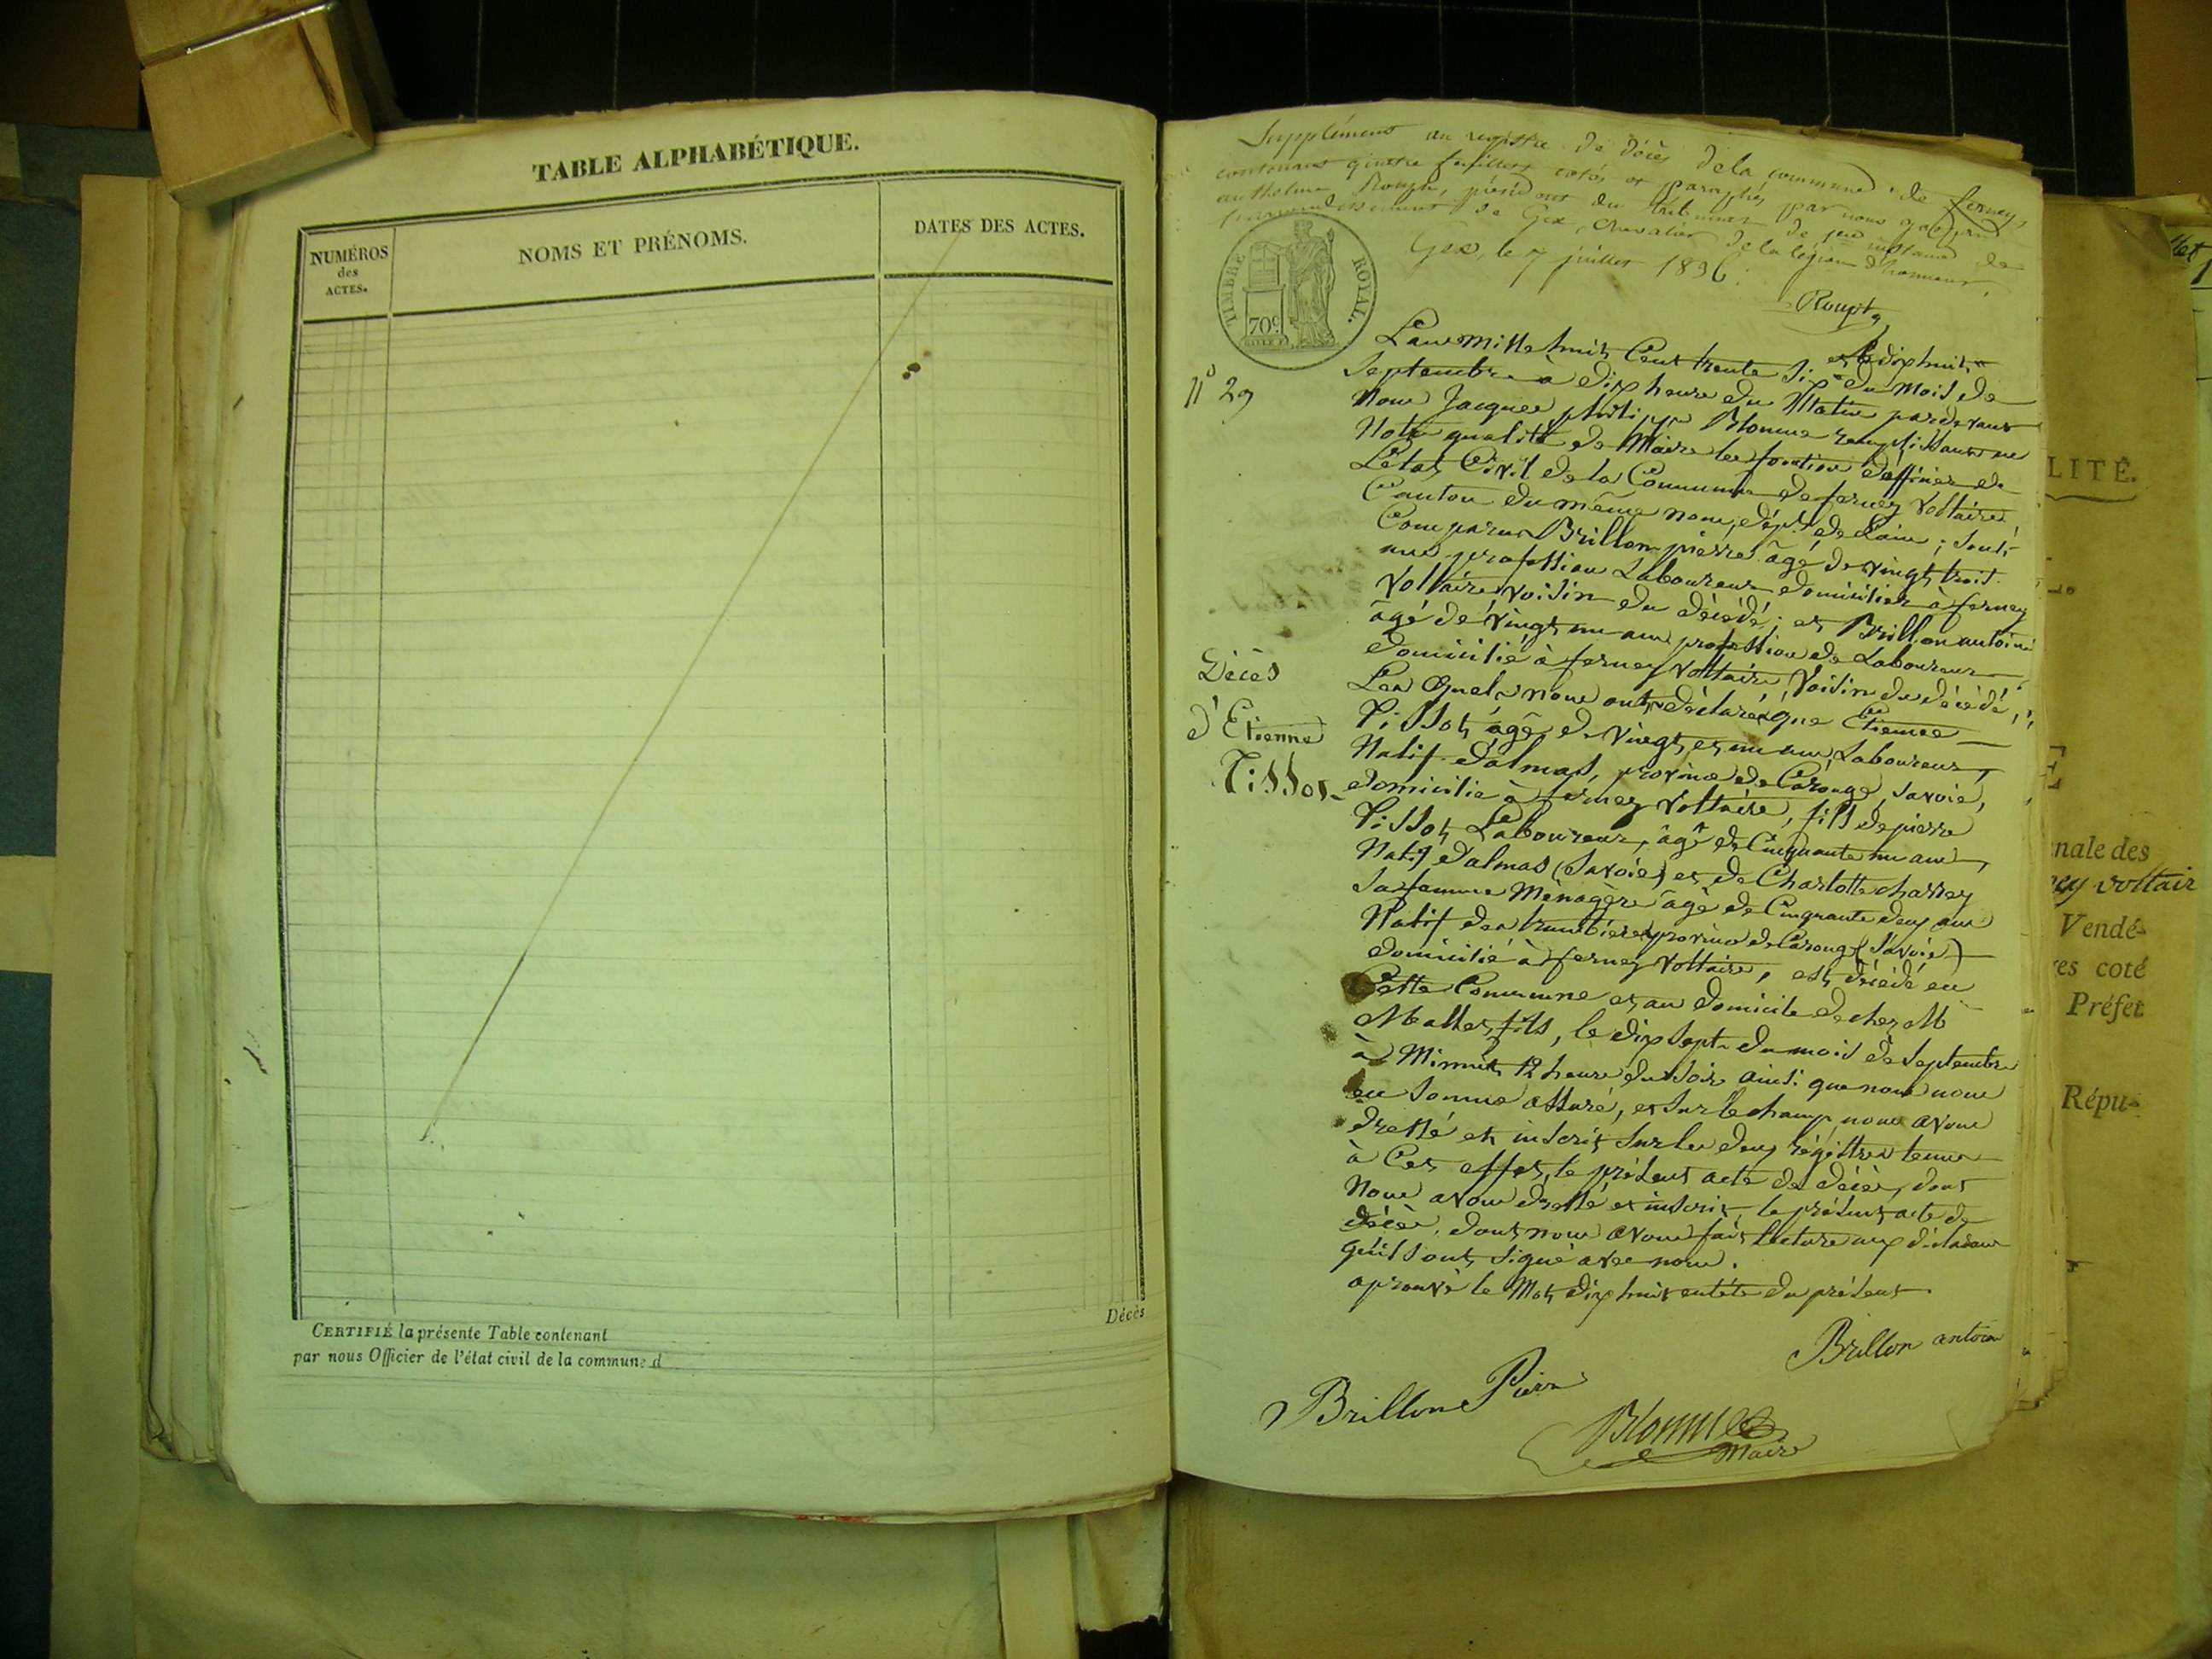 TABLE ALPHABÉTIQUE.
NUMÉROS
des
ACTES.
NOMS ET PRÉNOMS.
DATES DES ACTES.
Décès
CERTIFIÉ la présente Table contenant
par nous Officier de l'état civil de la commune d
Supplément au registre de décès de la commune de ferney,
contenant quatre feuillets cotés et paraphés par nous
anthelme Rouph, président du tribunal de 1ere instance de
l'arrondissement de Gex, chevalier de la légion d'honneur,
Gex, le 7 juillet 1836.
TIMBRE ROYAL.
70c
N° 29
Décès
d'Etienne
Tissot
L'an mille huit Cent trente Six et le dix huit du Mois de
Septembre à dix heure du Matin pardevant
Nous Jacques philippe Blonme remplissant en
Notre qualité de Maire les fonction d'officier de
L'état Civil de la Commune de ferney Voltaire
Canton du même nom, dépt de L'ain ; sont
Comparu Brillon pierre âgé de vingt trois
ans profession Laboureur domicilier à ferney
Voltaire voisin du décédé ; et Brillon antoine
âgé de vingt un ans profession de Laboureur
domicilié à ferney Voltaire, Voisin du décédé,
Les Quels nous ont déclaré que Etienne
Tissot âgé de vingt et un ans, Laboureur,
Natif d'almas, province de Carouge, Savoie,
domicilié à ferney Voltaire, fils de pierre
Tissot Laboureur, âgé de Cinquante un ans,
Natif d'almas (Savoie) et de Charlotte charrey
Sa femme Ménagère âgé de Cinquante deux ans
Natif des province de Caroug (Savoie)
domicilié à ferney Voltaire, est décédé en
Cette Commune et au domicile de chez M
Mallet fils, le dix sept du mois de Septembre
à Minuit 12 heure du soir ainsi que nous nous
en somme assuré, et sur le champ nous avons
dressé et inscrit sur les deux régistres tenus
à Cet effet, le présent acte de décès, dont
Nous avons dressé et inscrit, le présent acte de
décès. dont nous avons fait lecture aux déclarans
qu'ils ont signé avec nous.
aprouvé le Mot dix huit entête du présent.
Brillon antoine
Brillon Pierre
Blonme
Maire
LITÉ.
nale des
ney voltair
Vendé-
res coté
Préfet
Répu-